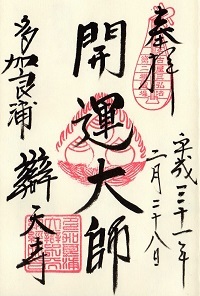 奉拝
平成三十一年
二月二十八日
開運大師
多加良浦
辯天寺